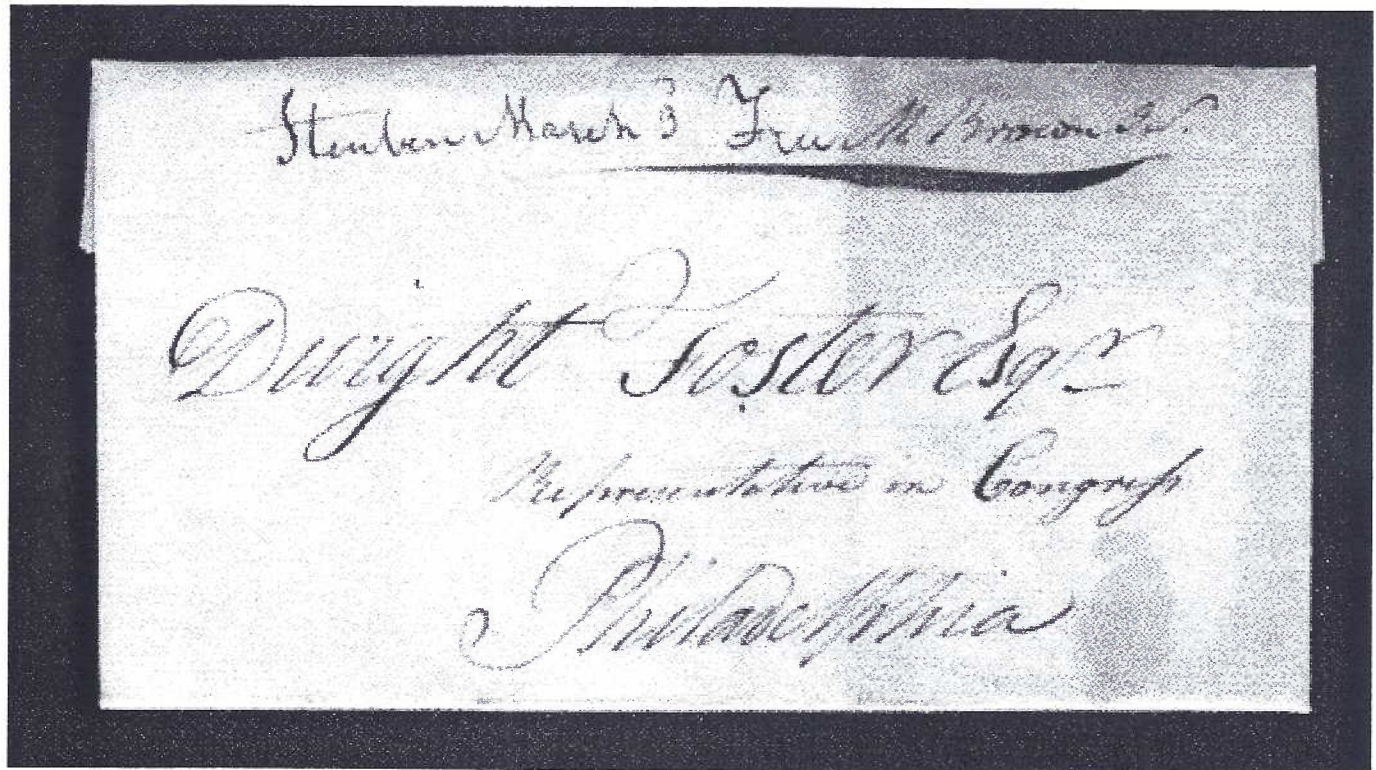 Steuben March 3 Free M Brown
Dwight Foster Esqr
Representative in Congress
Philadelphia